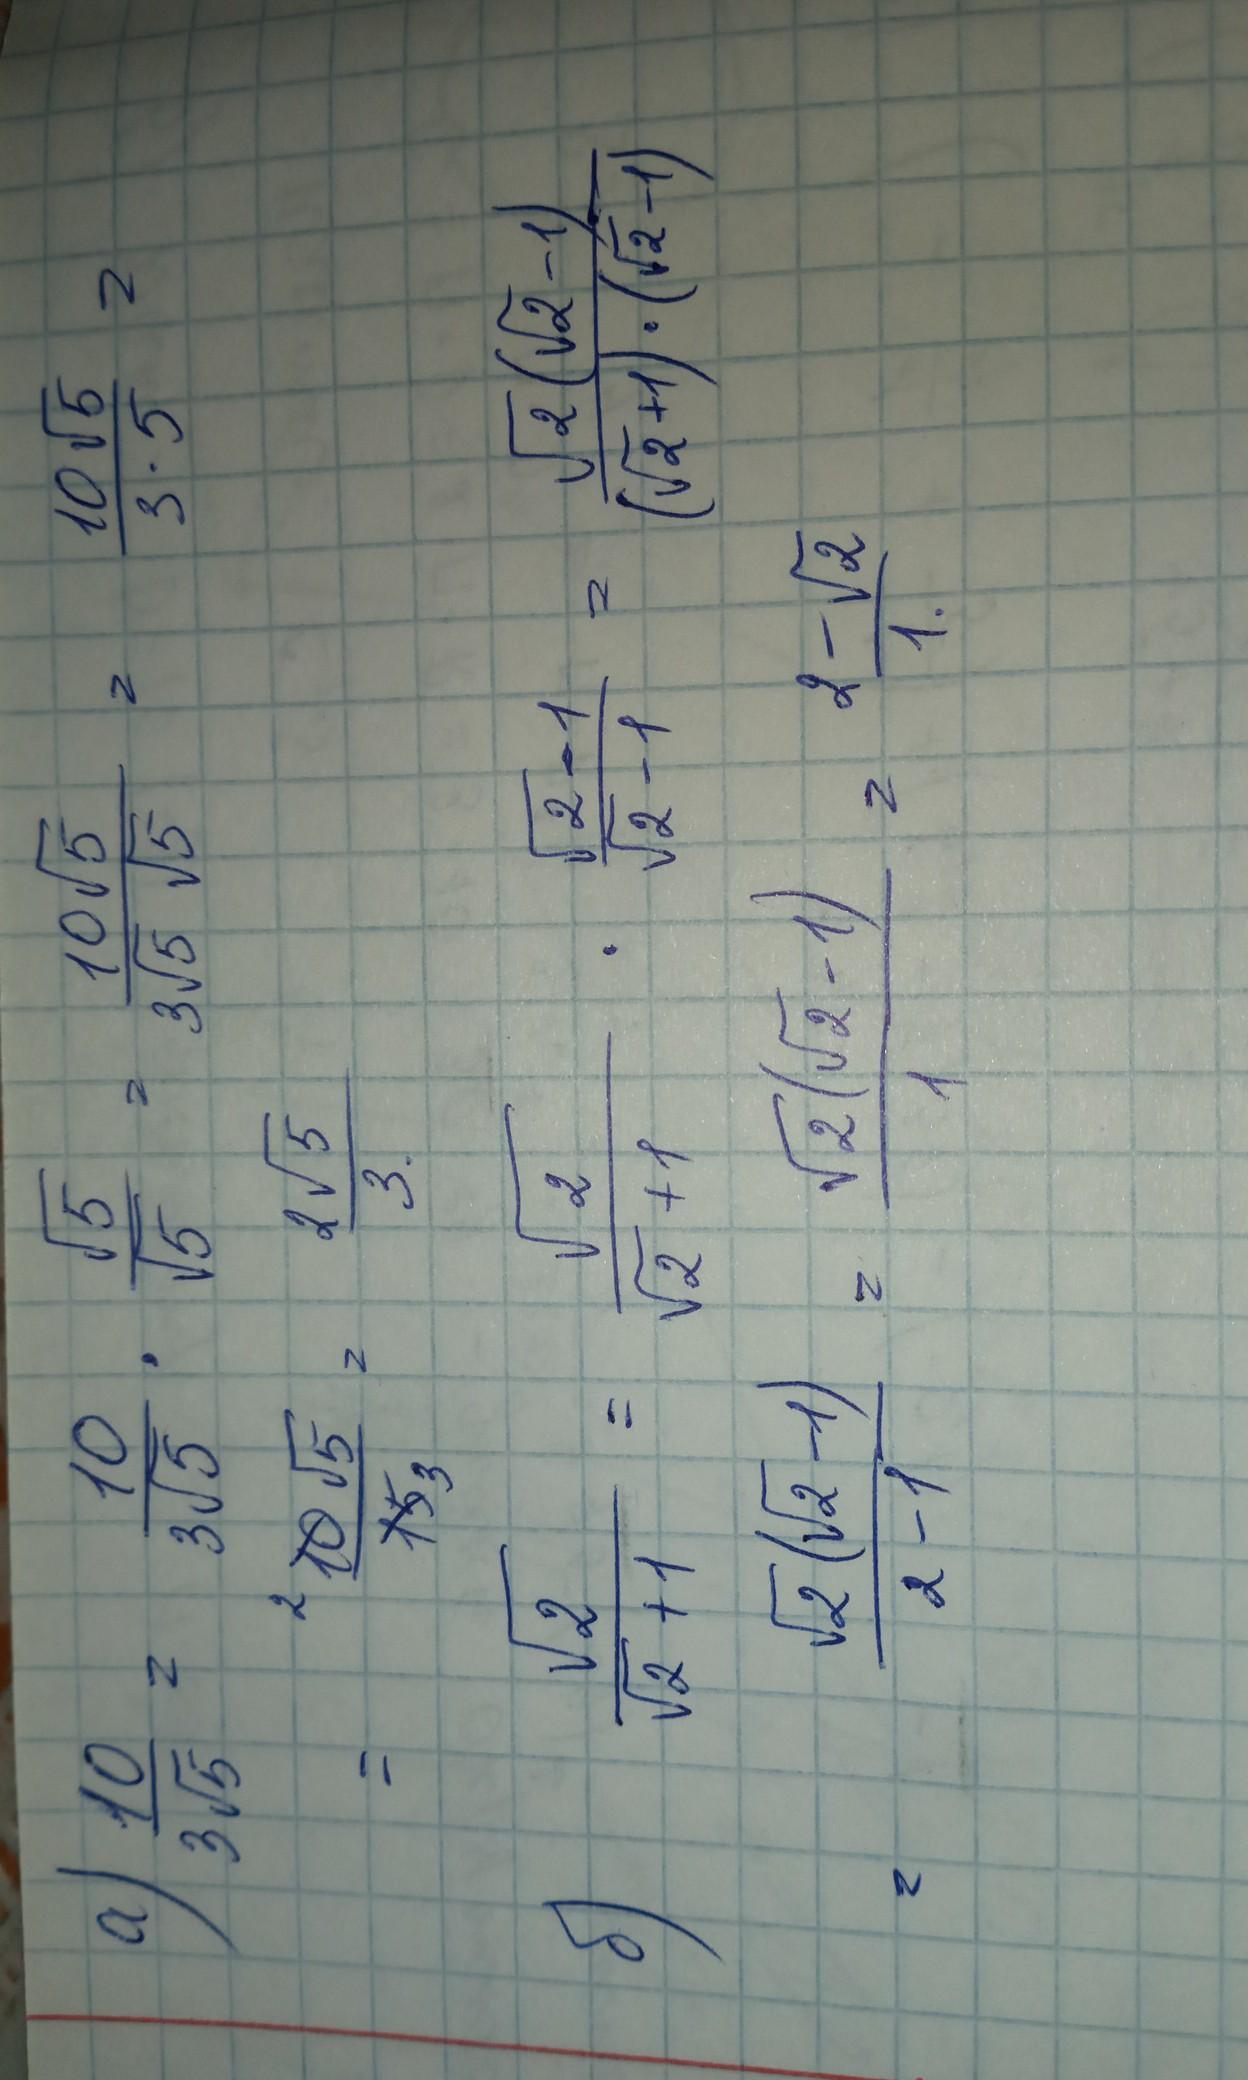 а) 10/(3√5) = 10/(3√5) · √5/√5 = 10√5/(3√5 √5) = 10√5/(3·5) =
= 10√5/15 = 2√5/3.
2 3
б) √2/(√2+1) = √2/(√2+1) · (√2-1)/(√2-1) = √2(√2-1)/((√2+1)·(√2-1))
= √2(√2-1)/(2-1) = √2(√2-1)/1 = (2-√2)/1.